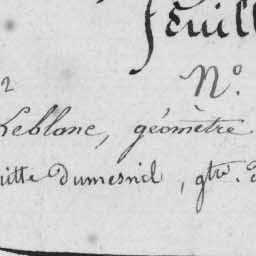 feuill
N°.
2
Leblanc, géomètre
uitte Dumesnil, gtre.